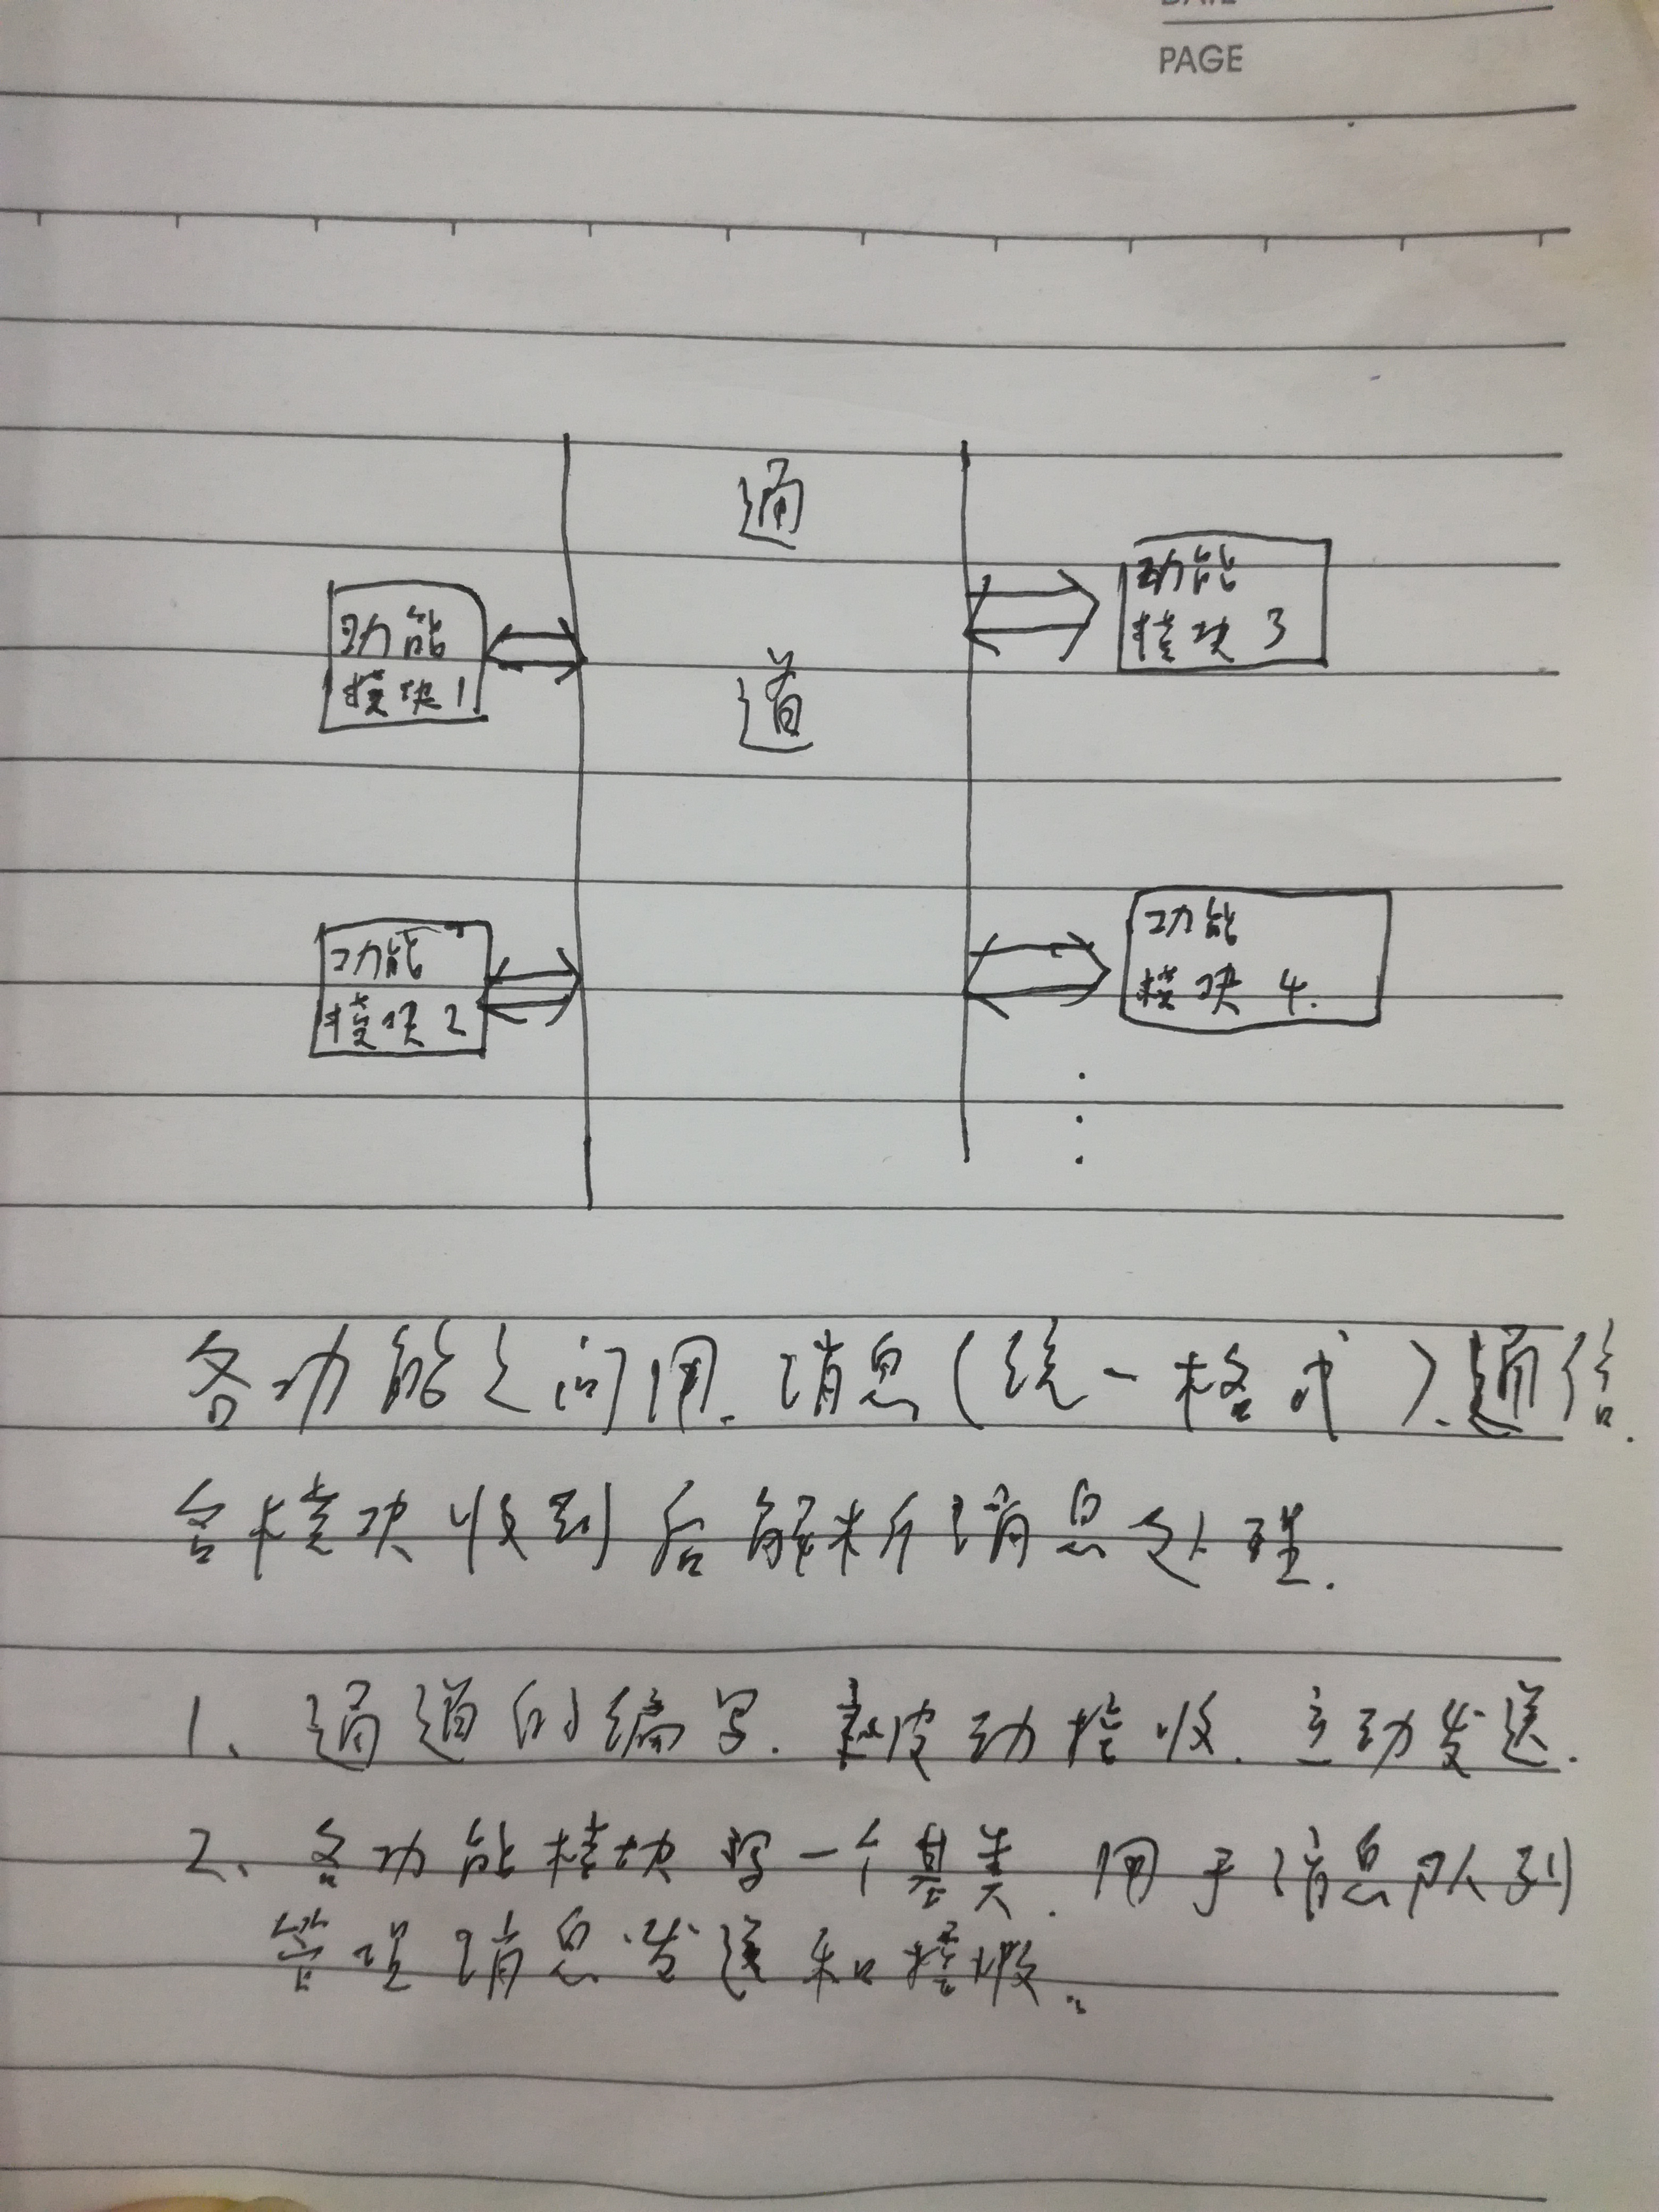 DATE
PAGE
通
道
功能
模块1
功能
模块3
功能
模块2
功能
模块4.
各功能之间用.消息(统一格式).通信.
各模块收到后解析消息处理.
1、通道的编写.被动接收.主动发送.
2、各功能模块写一个基类.用于消息队列
管理消息发送和接收.